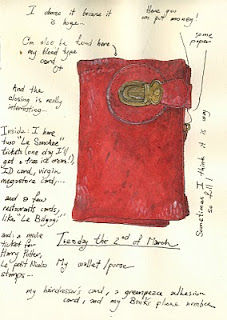 I choose it because it
is huge...
Here you
can put money!
some
papers
I'm also be found here
my blood type
card
O+
And the
closing is really
interesting...
Inside: I have
two "Le Smoker"
tickets (one day I'll
get a free ice cream!),
ID card, virgin
megastore card,...
and a few
restaurants cards,
like "Le Biliggi"
and a movie
ticket for
Harry Potter,
"Le petit Nicolas"
stamps...
Sometimes I think it is way
so full!
Tuesday the 2nd of March
My wallet/purse
my hairdresser's card, a greenpeace adhesion
card, and my Bank's phone number